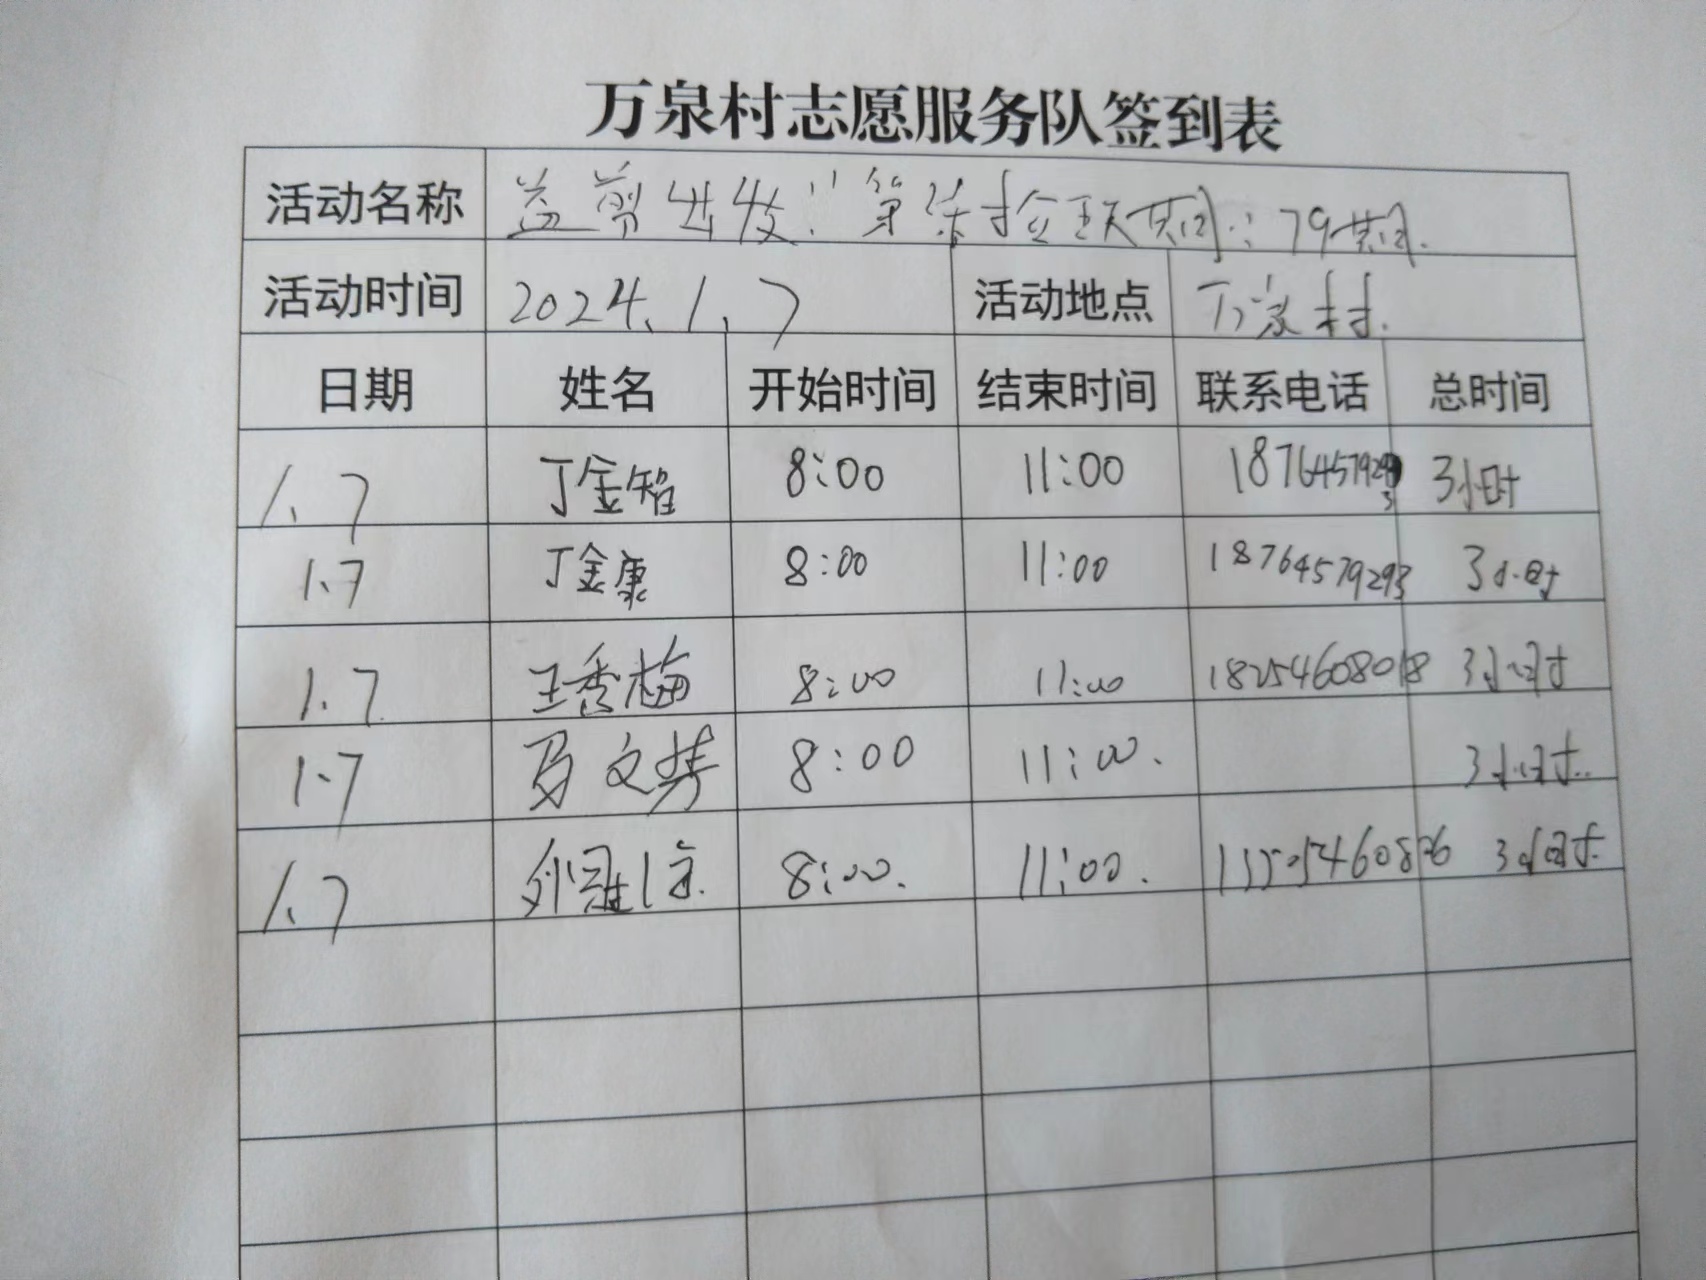 万泉村志愿服务队签到表
活动名称 益剪出发
活动时间 2024.1.7 活动地点 万泉村.
日期 姓名 开始时间 结束时间 联系电话 总时间
1.7 丁金智 8:00 11:00 3小时
1.7 丁金康 8:00 11:00 18764579293 3小时
1.7 王秀梅 8:00 11:00 18254608018 3小时
1.7 文 8:00 11:00. 3小时.
1.7 8:00. 11:00. 3小时.